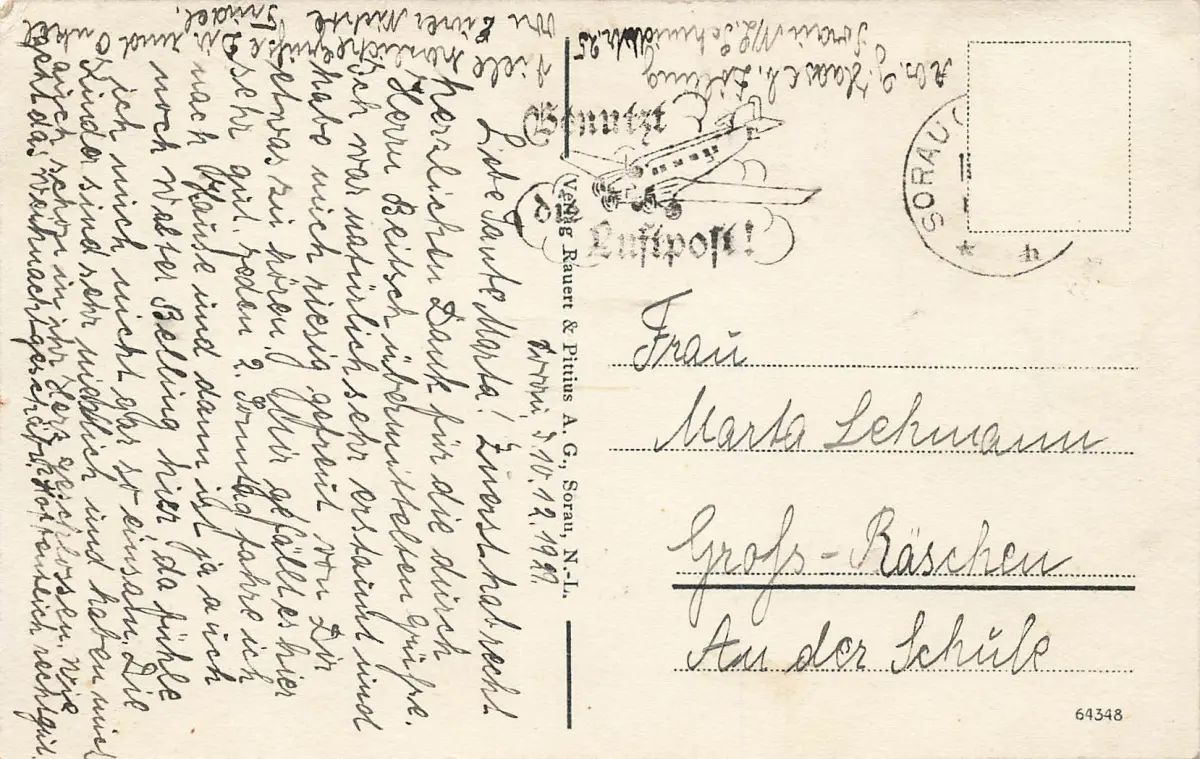 Sorau, d. 10.12.
Liebe Tante Marta! Zuerst hab recht
herzlichen Dank für die durch
Herrn Beitsch übermittelten Grüße.
Ich war natürlich sehr erstaunt und
habe mich riesig gefreut von Dir
etwas zu hören. Mir gefällt es hier
sehr gut. Jeden 2. Sonntag fahre ich
nach Hause und dann ist ja auch
noch Walter Belling hier, da fühle
ich mich nicht gar so einsam. Die
Kinder sind sehr niedlich und haben mich
auch schon in ihr Herz geschlossen. Wie
geht das Weihnachtsgeschäft? Hoffentlich recht gut.
Viele herzliche Grüße Dir und Onkel
von Eurer Nichte
Trudel.
Abs. G. Haase b. Zölling
Sorau N/L.
Benutzt
die
Luftpost!
SORAU
* h
Frau
Marta Lehmann
Groß-Räschen
An der Schule
Verlag Rauert & Pittius A. G., Sorau, N.-L.
64348